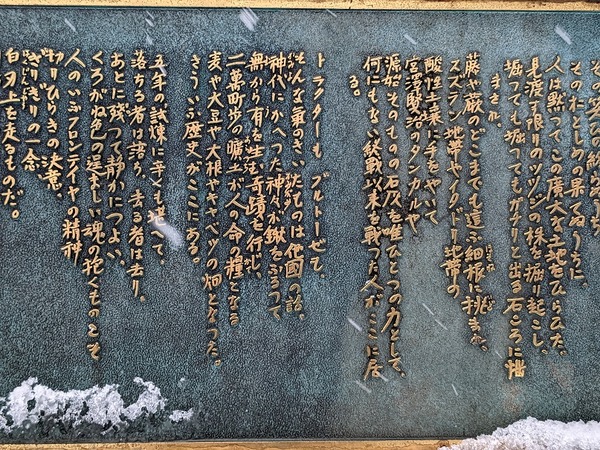 その笑ひの終らぬうち
そのおとしめの果てぬうちに、
人は黙つてこの廣大な土地をひらいた。
見渡す限りのツツジの株を掘り起こし、
掘つても掘つてもガチリと出る石ころに悩
まされ、
藤や蕨のどこまでも這ふ細根に挑まれ、
スズラン地帯やイタドリ地帯の
酸性土壌に手をやいて
宮澤賢治のタンカルや
源始そのものの石灰を唯ひとつの力として、
何にもない終戦以来を戦つた人がここに居
る。
トラクターも ブルトーザも、
そんな氣のきいたものは他國の話、
神代にかへつた神々が鍬をふるつて
無から有を生む奇蹟を行じ、
二萬町歩の曠土が人の命の糧となる
麦や大豆や大根やキャベツの畑となつた。
さういふ歴史がここにある。
五年の試煉に辛くも堪へて、
落ちる者は落ち、去る者は去り、
あとに残つて静かにつよい、
くろがね色の逞ましい魂の抱くものこそ
人のいふフロンテイヤの精神、
切りひらきの決意、
ぎりぎりの一念、
白刃上を走るものだ。